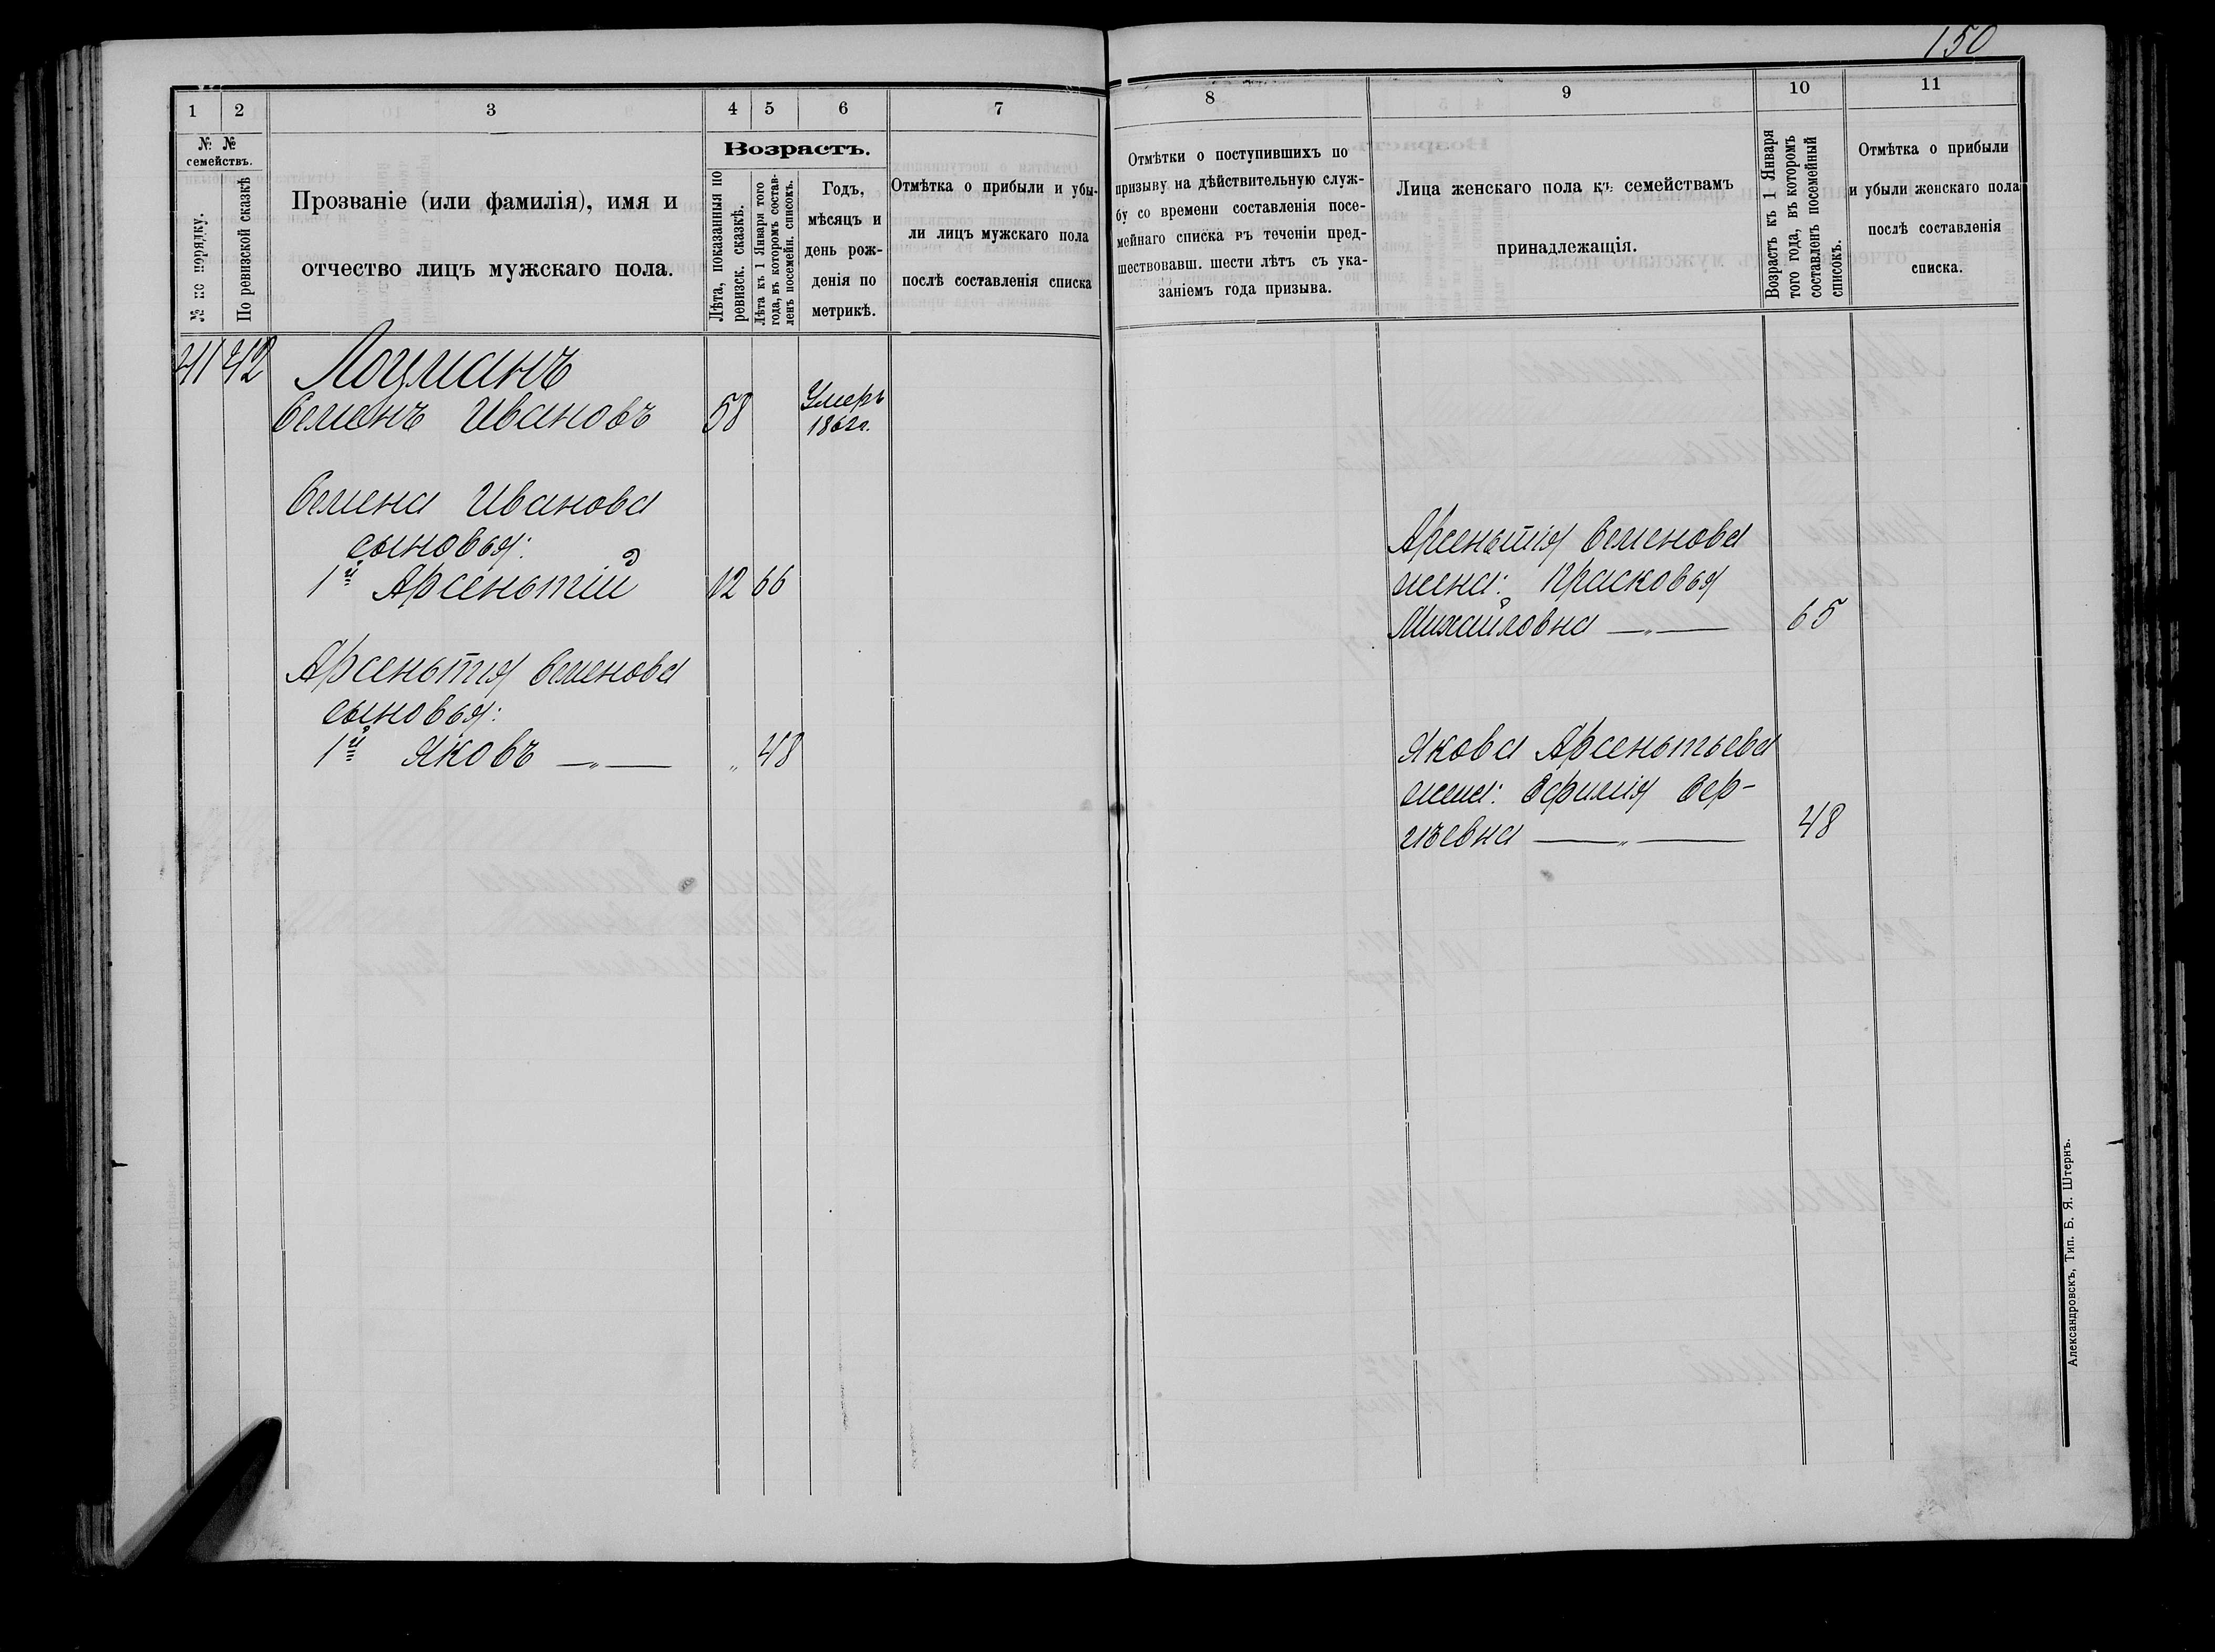 150
1
2
3
4
5
6
7
№ №
семействъ.
№ по порядку.
По ревизской сказкѣ
Прозваніе (или фамилія), имя и
отчество лицъ мужскаго пола.
Возрастъ.
Лѣта, показанныя по
ревизск. сказкѣ.
Лѣта къ 1 Января того
года, въ которомъ состав-
ленъ посемейн. списокъ.
Годъ,
мѣсяцъ и
день рож-
денія по
метрикѣ.
Отмѣтка о прибыли и убы-
ли лицъ мужскаго пола
послѣ составленія списка
41 42 Лоцманъ
Семенъ Ивановъ 58 Умеръ
1862г.
Семена Иванова
сыновья:
1й Арсентій 12 66
Арсентия Семенова
сыновья:
1й Яковъ — „ — „ 48
8
9
10
11
Отмѣтки о поступившихъ по
призыву на дѣйствительную служ-
бу со времени составленія посе-
мейнаго списка въ теченіи пред-
шествовавш. шести лѣтъ съ ука-
заніемъ года призыва.
Лица женскаго пола къ семействамъ
принадлежащія.
Возрастъ къ 1 Января
того года, въ которомъ
составленъ посемейный
списокъ.
Отмѣтка о прибыли
и убыли женскаго пола
послѣ составленія
списка.
Арсентія Семенова
жена: Прасковья
Михайловна — „ — 65
Якова Арсентьева
жена: Ефимія Сер-
гѣевна — „ — 48
Александровскъ, Тип. Б. Я. Штернъ.